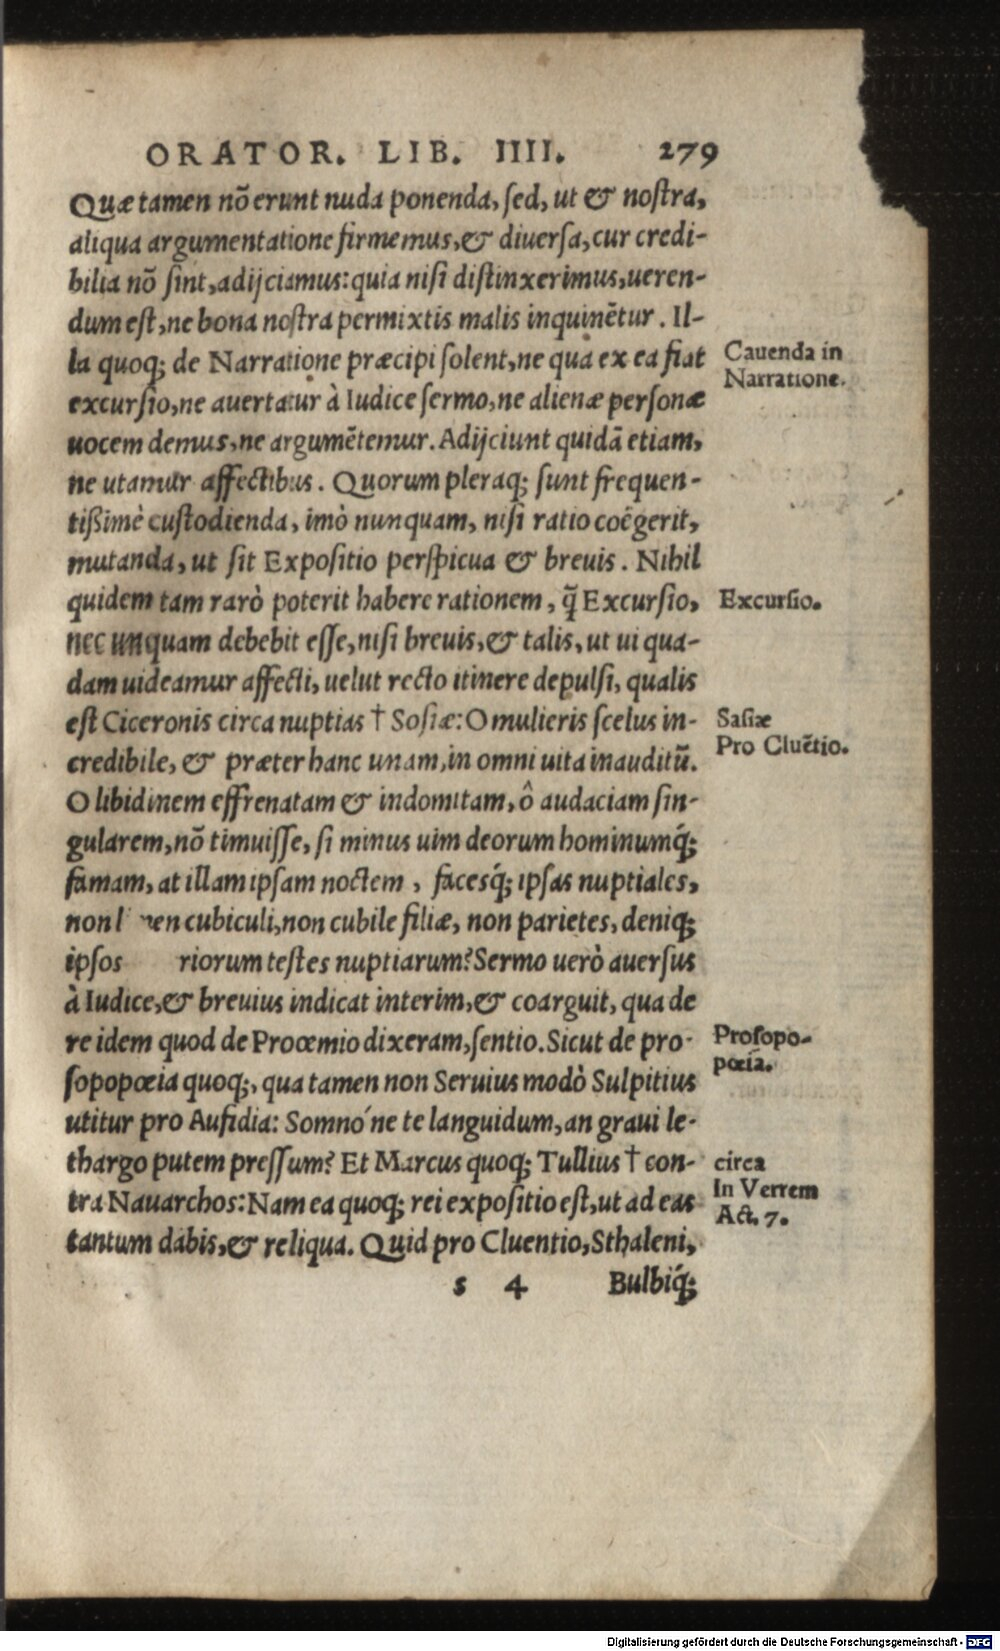 ORATOR. LIB. IIII. 279
Quæ tamen nō erunt nuda ponenda, sed, ut & nostra,
aliqua argumentatione firmemus, & diuersa, cur credi-
bilia nō sint, adijciamus: quia nisi distinxerimus, ueren-
dum est, ne bona nostra permixtis malis inquinētur. Il-
la quoq; de Narratione præcipi solent, ne qua ex ea fiat
Cauenda in
Narratione.
excursio, ne auertatur à Iudice sermo, ne alienæ personæ
uocem demus, ne argumētemur. Adijciunt quidā etiam,
ne utamur affectibus. Quorum pleraq; sunt frequen-
tißimè custodienda, imò nunquam, nisi ratio coëgerit,
mutanda, ut sit Expositio perspicua & breuis. Nihil
quidem tam rarò poterit habere rationem, q̃ Excursio,
Excursio.
nec unquam debebit esse, nisi breuis, & talis, ut ui qua-
dam uideamur affecti, uelut recto itinere depulsi, qualis
est Ciceronis circa nuptias † Sosiæ: O mulieris scelus in-
Sasiæ
Pro Cluētio.
credibile, & præter hanc unam, in omni uita inauditū.
O libidinem effrenatam & indomitam, ô audaciam sin-
gularem, nō timuisse, si minus uim deorum hominumq́;
famam, at illam ipsam noctem, facesq́; ipsas nuptiales,
non l en cubiculi, non cubile filiæ, non parietes, deniq;
ipsos riorum testes nuptiarum? Sermo uerò auersus
à Iudice, & breuius indicat interim, & coarguit, qua de
re idem quod de Proœmio dixeram, sentio. Sicut de pro-
Prosopo-
pœia.
sopopœia quoq;, qua tamen non Seruius modò Sulpitius
utitur pro Aufidia: Somnó ne te languidum, an graui le-
thargo putem pressum? Et Marcus quoq; Tullius † con-
circa
In Verrem
Act. 7.
tra Nauarchos: Nam ea quoq; rei expositio est, ut ad eas
tantum dabis, & reliqua. Quid pro Cluentio, Sthaleni,
s 4 Bulbiq́;
Digitalisierung gefördert durch die Deutsche Forschungsgemeinschaft - DFG